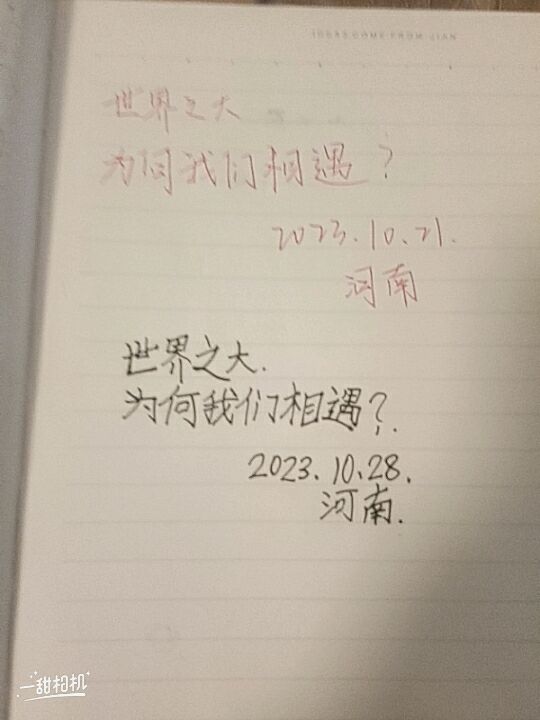 IDEAS COME FROM JIAN
世界之大
为何我们相遇？
2023.10.21.
河南
世界之大.
为何我们相遇？.
2023.10.28.
河南.
一甜相机